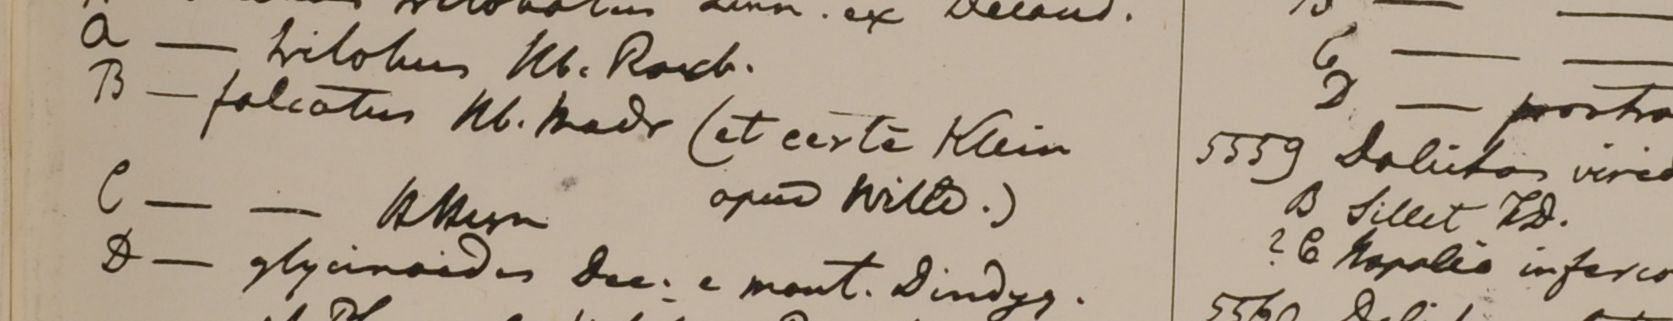 trilobatus Linn. ex Decand.
A — trilobus Hb. Roxb.
B — falcatus Hb. Madr (et certe Klein
apud Willd.)
C — — H Heyn
D — glycinoides Dec. e mont. Dindyg.
B — —
C — —
D — prostra
5559 Dolichos virid
B Sillet FD.
? C Napalia inferio
5560 Dolich